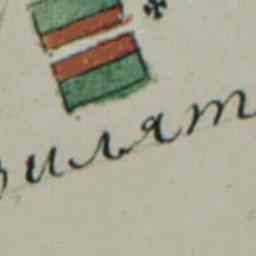 илят